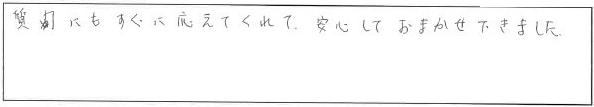 質問にもすぐに応えてくれて、安心しておまかせできました。